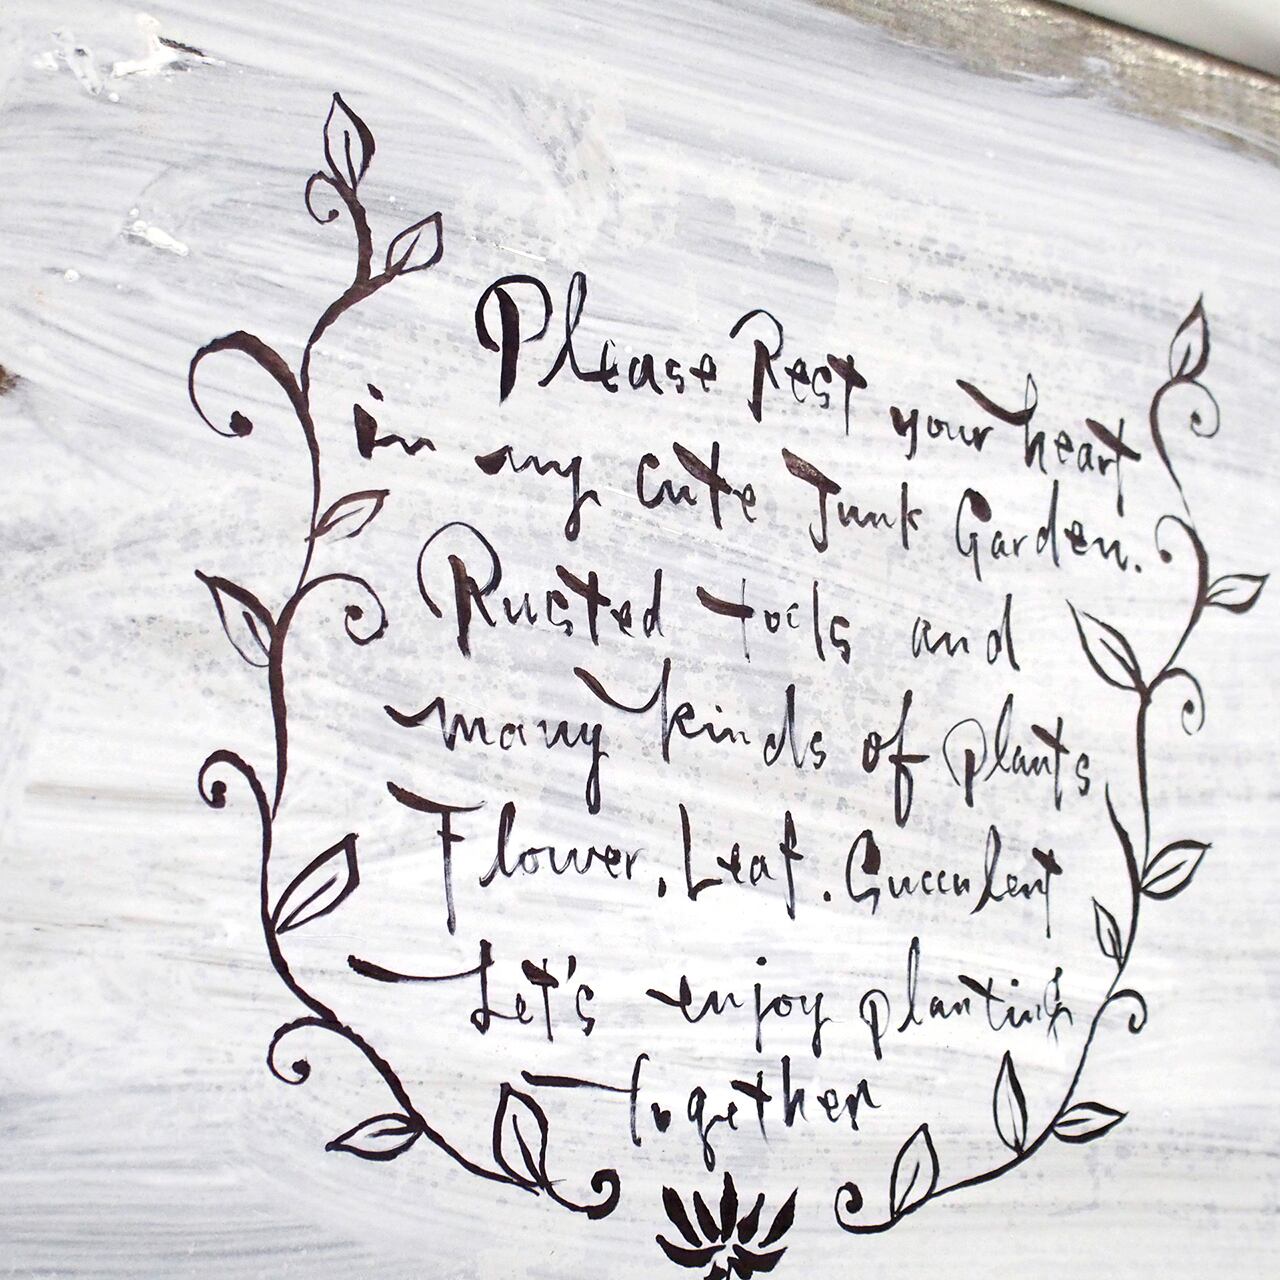 Please Rest your heart
in my cute Junk Garden.
Rusted tools and
many kinds of plants
Flower. Leaf. Succulent
Let's enjoy planting
together